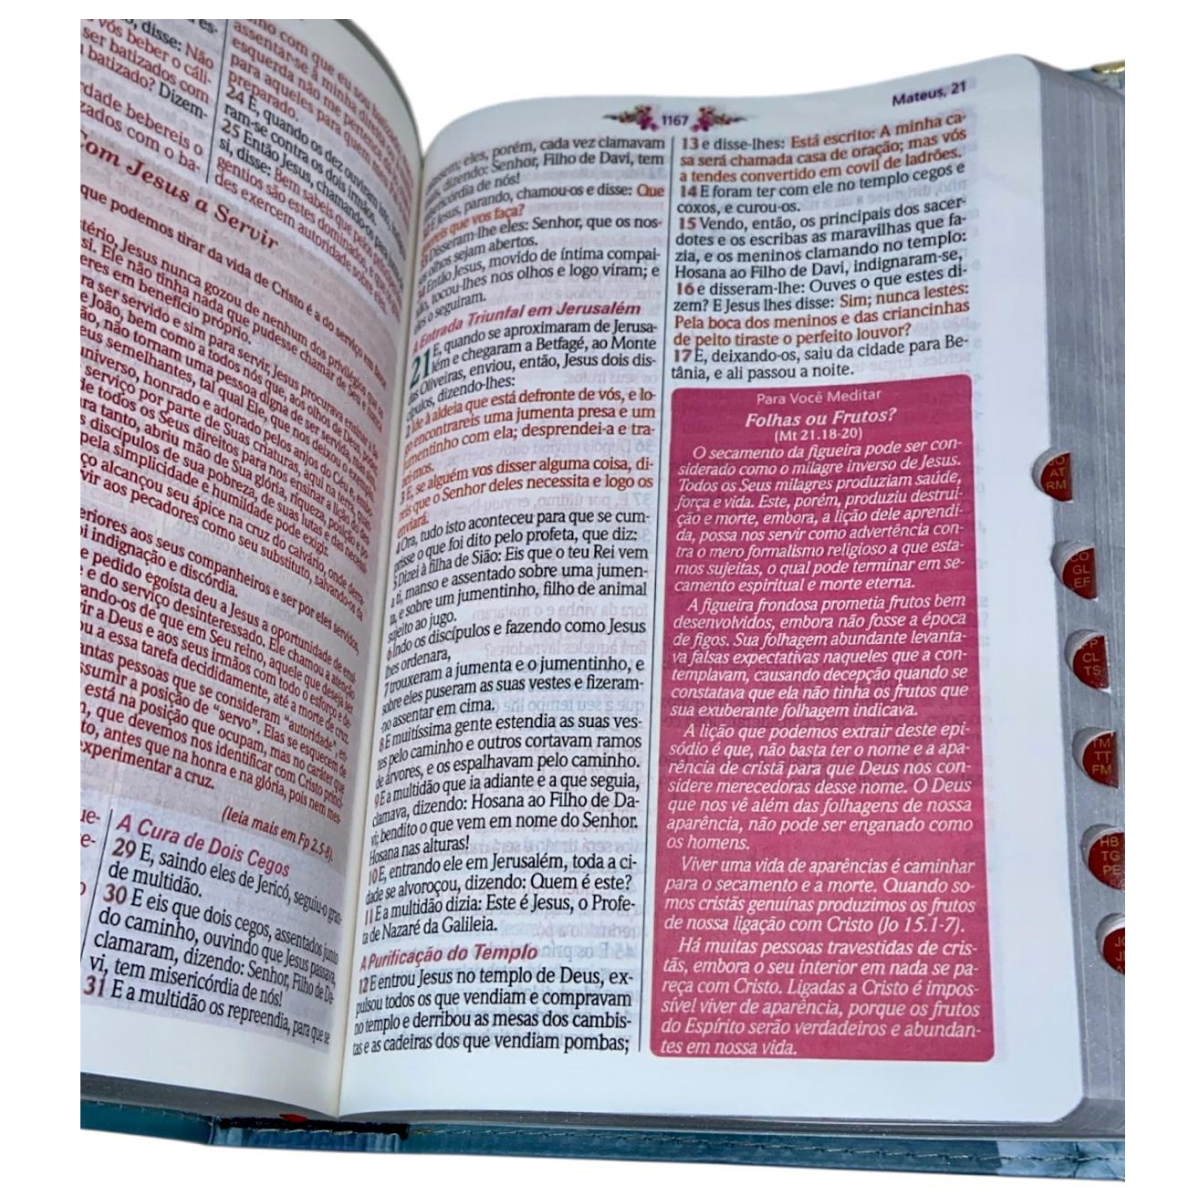 , disse: Não
vós beber o cáli-
ser batizados com
batizado? Dizem-
dade bebereis o
zados com o ba-
assentar-se à minha direita
esquerda não me pertence
para aqueles para quem
preparado.
24 E, quando os dez ouviram isto,
ram-se contra os dois irmãos.
25 Então Jesus, chamando-os para
si, disse: Bem sabeis que pelos
gentios são estes dominados, e que
des exercem autoridade sobre eles.
com Jesus a Servir
que podemos tirar da vida de Cristo é a do serviço
tério, Jesus nunca gozou de nenhum dos privilégios
si. Ele não tinha nada que pudesse chamar de Seu
eres em benefício próprio.
ra ser servido e sim para servir, Jesus procurava ensinar
e João, bem como a todos nós que, aos olhos de Deus,
ão, não tornam uma pessoa digna de ser servida, mas
eus semelhantes, tal qual Ele, que nos deixou o exemplo.
universo, honrado e adorado pelos anjos do Céu,
serviço por parte de Suas criaturas, aqui na terra,
de todos os Seus direitos para nos ensinar a lição de
ra tanto, abriu mão de Sua glória, riqueza, posição e
s discípulos de sua pobreza, de suas lutas e das
pela simplicidade e humildade pode exigir.
ço alcançou seu ápice na cruz do calvário, onde
vir aos pecadores como seu substituto, salvando-os da
eriores aos seus companheiros e ser por eles servidos,
indignação e discórdia.
e pedido egoísta deu a Jesus a oportunidade de
e do serviço desinteressado. Ele chamou a atenção
ando-os de que em Seu reino, aquele que deseja ser
ir a Deus e aos seus irmãos com todo o esforço e
ou a essa tarefa decididamente, até a morte de cruz.
antas pessoas que se consideram "autoridade",
ssumir a posição de "servo". Elas se esquecem de
está na posição que ocupam, mas no caráter que
, que devemos nos identificar com Cristo
to, antes que na honra e na glória, pois nem
experimentar a cruz.
(leia mais em Fp 2.5-8).
A Cura de Dois Cegos
29 E, saindo eles de Jericó, seguiu-o gran-
de multidão.
30 E eis que dois cegos, assentados junto
do caminho, ouvindo que Jesus passava,
clamaram, dizendo: Senhor, Filho de Da-
vi, tem misericórdia de nós!
31 E a multidão os repreendia, para que se
1167
Mateus, 21
assem; eles, porém, cada vez clamavam
, dizendo: Senhor, Filho de Davi, tem
misericórdia de nós!
E Jesus, parando, chamou-os e disse: Que
quereis que vos faça?
Disseram-lhe eles: Senhor, que os nos-
sos olhos sejam abertos.
Então Jesus, movido de íntima compai-
xão, tocou-lhes nos olhos e logo viram; e
eles o seguiram.
A Entrada Triunfal em Jerusalém
21 E, quando se aproximaram de Jerusa-
lém e chegaram a Betfagé, ao Monte
das Oliveiras, enviou, então, Jesus dois dis-
cípulos, dizendo-lhes:
2 Ide à aldeia que está defronte de vós, e lo-
go encontrareis uma jumenta presa e um
jumentinho com ela; desprendei-a e tra-
zei-mos.
3 E, se alguém vos disser alguma coisa, di-
reis que o Senhor deles necessita e logo os
enviará.
4 Ora, tudo isto aconteceu para que se cum-
prisse o que foi dito pelo profeta, que diz:
5 Dizei à filha de Sião: Eis que o teu Rei vem
a ti, manso e assentado sobre uma jumen-
ta, e sobre um jumentinho, filho de animal
sujeito ao jugo.
6 Indo os discípulos e fazendo como Jesus
lhes ordenara,
7 trouxeram a jumenta e o jumentinho, e
sobre eles puseram as suas vestes e fizeram-
no assentar em cima.
8 E muitíssima gente estendia as suas ves-
tes pelo caminho e outros cortavam ramos
de árvores, e os espalhavam pelo caminho.
9 E a multidão que ia adiante e a que seguia,
clamava, dizendo: Hosana ao Filho de Da-
vi; bendito o que vem em nome do Senhor.
Hosana nas alturas!
10 E, entrando ele em Jerusalém, toda a ci-
dade se alvoroçou, dizendo: Quem é este?
11 E a multidão dizia: Este é Jesus, o Profe-
ta de Nazaré da Galileia.
A Purificação do Templo
12 E entrou Jesus no templo de Deus, ex-
pulsou todos os que vendiam e compravam
no templo e derribou as mesas dos cambis-
tas e as cadeiras dos que vendiam pombas;
13 e disse-lhes: Está escrito: A minha ca-
sa será chamada casa de oração; mas vós
a tendes convertido em covil de ladrões.
14 E foram ter com ele no templo cegos e
coxos, e curou-os.
15 Vendo, então, os principais dos sacer-
dotes e os escribas as maravilhas que fa-
zia, e os meninos clamando no templo:
Hosana ao Filho de Davi, indignaram-se,
16 e disseram-lhe: Ouves o que estes di-
zem? E Jesus lhes disse: Sim; nunca lestes:
Pela boca dos meninos e das criancinhas
de peito tiraste o perfeito louvor?
17 E, deixando-os, saiu da cidade para Be-
tânia, e ali passou a noite.
Para Você Meditar
Folhas ou Frutos?
(Mt 21.18-20)
O secamento da figueira pode ser con-
siderado como o milagre inverso de Jesus.
Todos os Seus milagres produziam saúde,
força e vida. Este, porém, produziu destrui-
ção e morte, embora, a lição dele aprendi-
da, possa nos servir como advertência con-
tra o mero formalismo religioso a que esta-
mos sujeitas, o qual pode terminar em se-
camento espiritual e morte eterna.
A figueira frondosa prometia frutos bem
desenvolvidos, embora não fosse a época
de figos. Sua folhagem abundante levanta-
va falsas expectativas naqueles que a con-
templavam, causando decepção quando se
constatava que ela não tinha os frutos que
sua exuberante folhagem indicava.
A lição que podemos extrair deste epi-
sódio é que, não basta ter o nome e a apa-
rência de cristã para que Deus nos con-
sidere merecedoras desse nome. O Deus
que nos vê além das folhagens de nossa
aparência, não pode ser enganado como
os homens.
Viver uma vida de aparências é caminhar
para o secamento e a morte. Quando so-
mos cristãs genuínas produzimos os frutos
de nossa ligação com Cristo (Jo 15.1-7).
Há muitas pessoas travestidas de cris-
tãs, embora o seu interior em nada se pa-
reça com Cristo. Ligadas a Cristo é impos-
sível viver de aparência, porque os frutos
do Espírito serão verdadeiros e abundan-
tes em nossa vida.
AT
RM
GL
EF
CL
TS
TM
TT
FM
HB
TG
PE